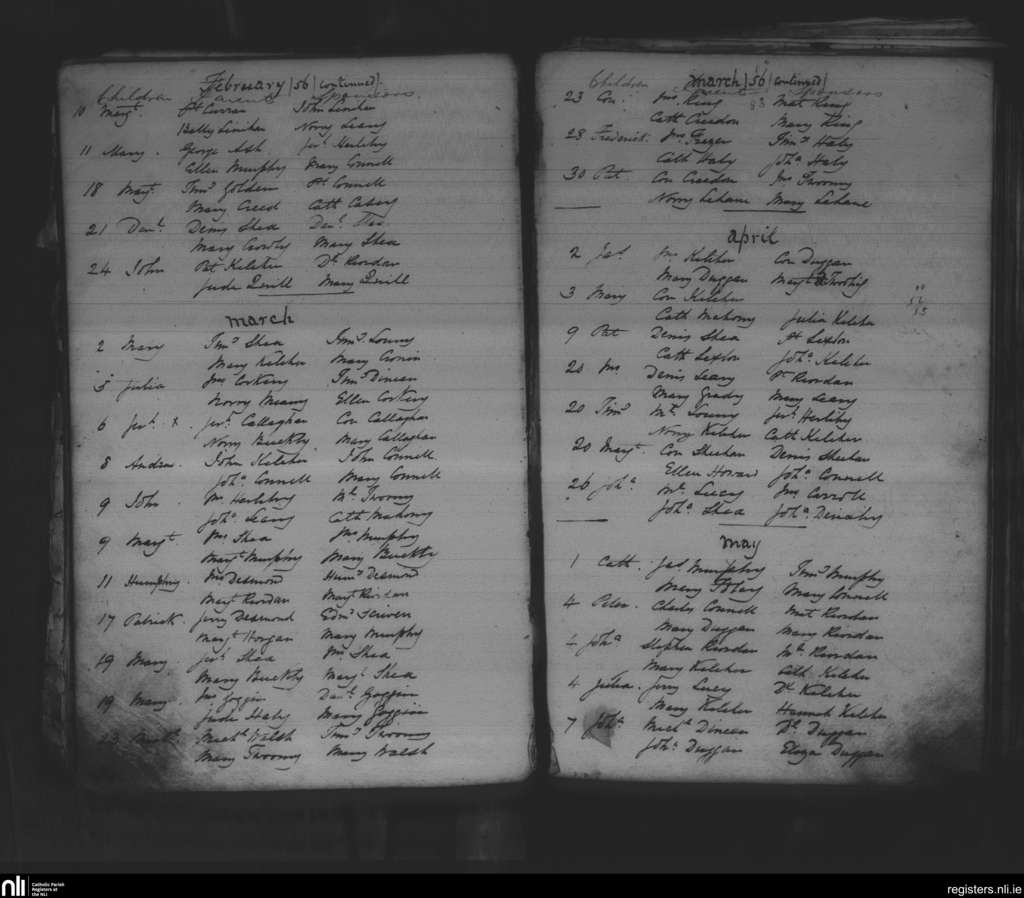 February /56/ (continued).
Children Parents Sponsors.
10 Margt. Pt Curran John Linihan
Betty Linihan Norry Leary
11 Mary. George Ash Jerh Herlihy
Ellen Murphy Mary Connell
18 Margt Timo Golden Pt Connell
Mary Creed Cath Casey
21 Danl. Denis Shea Danl. Shea
Mary Crowly Mary Shea
24 John Pat Keleher Dl Riordan
Jude Quill Mary Quill
March
2 Mary Timo Shea Timo. Loony
Mary Keleher Mary Cronin
5 Julia Jno Corkery Timo Dineen
Norry Meany Ellen Corkery
6 Jerh. x. Jerh. Callaghan Con Callaghan
Norry Buckly Mary Callaghan
8 Andrew. John Keleher John Connell
Joha. Connell Mary Connell
9 John Jno Herlihy Ml. Twomy
Joha. Leary Cath Mahony
9 Margt. Jno Shea Jno Murphy
Margt Murphy Mary Buckly
11 Humphry. Jno Desmond Humo Desmond
Margt Riordan Margt Riordan
17 Patrick. Jerry Desmond Edmd Scriven
Margt Horgan Mary Murphy
19 Mary. Jerh. Shea Jno. Shea
Mary Buckly Margt Shea
19 Mary. Jno Goggin Danl. Goggin
Jude Haly Mary Goggin
Michl Michl Walsh Timo. Twomy
Mary Twomy Mary Walsh
March /56/ (continued)
Children Parents Sponsors
23 Con: Jno. King 83 Mat King
Cath Creedon Mary King
28 Frederick. Jno Frazer Timo Haly
Cath Haly Joha Haly
30 Pat Con Creedon Jno Twomy
Norry Lehane Mary Lehane
April
2 Jas. Jno Keleher Con Duggan
Mary Duggan Margt Twohig
3 Mary Con Keleher
Cath Mahony Julia Keleher
9 Pat Denis Shea Pt Sexton
Cath Sexton Joha. Keleher
20 Jno Denis Leary Pt Riordan
Mary Grady Mary Leary
20 Timo Ml. Loony Jerh Herlihy
Norry Keleher Cath Keleher
20 Margt. Con Sheehan Denis Sheehan
Ellen Horan Joha. Connell
26 Joha. Ml. Lucey Jno Carroll
Joha. Shea Joha. Dinahy
May
1 Cath. Jas Murphy Timo Murphy
Mary Foley Mary Connell
4 Peter. Charles Connell Mat Riordan
Mary Duggan Mary Riordan
4 Joha Stephen Riordan Ml. Riordan
Mary Keleher Cath Keleher
4 Julia. Jerry Lucy Dl Keleher
Mary Keleher Hannah Keleher
7 Joha Michl Dineen Dl. Duggan
Joha. Duggan Eliza Duggan
nli Catholic Parish
Registers at
the NLI
registers.nli.ie